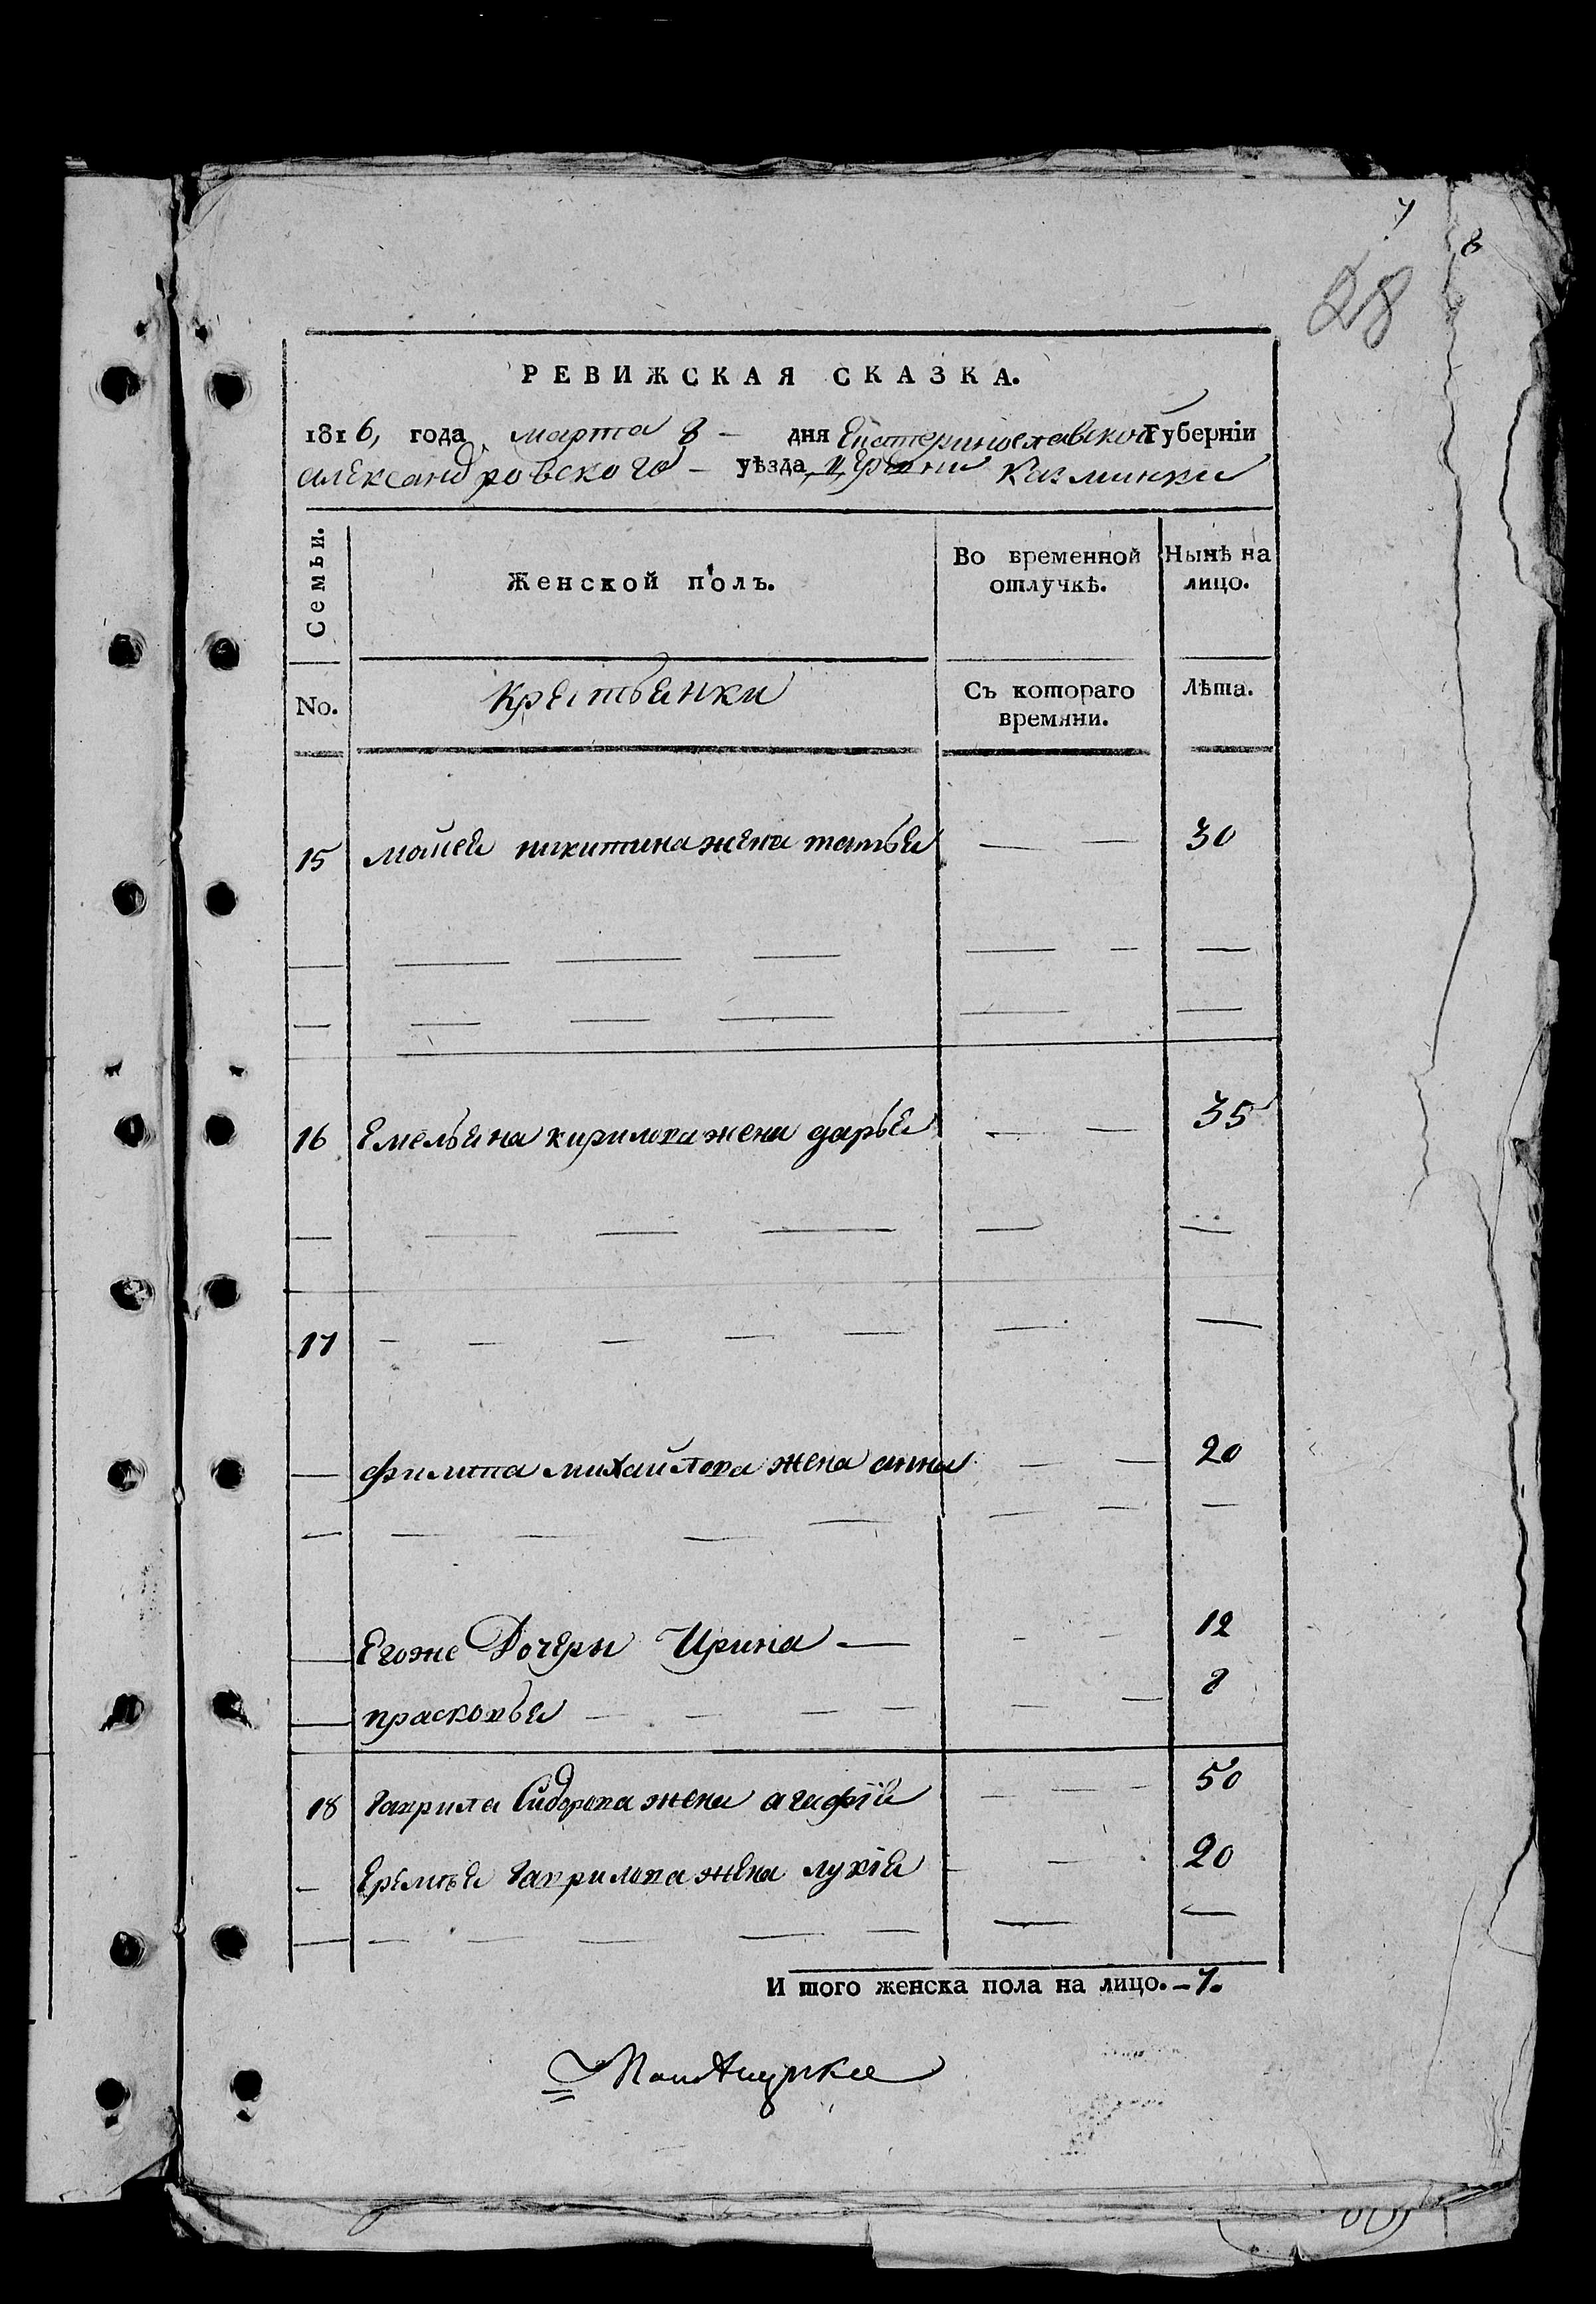 7
8
28
РЕВИЖСКАЯ СКАЗКА.
1816, года марта 8 – дня Екатеринославской Губерніи
александровского – уѣзда, деревни Казминки
Семьи. Женской полъ. Во временной отлучкѣ. Нынѣ на лицо.
No. крестьянки Съ котораго времяни. Лѣта.
15 мойсея никитина жена татья — — 30
— — — — — — —
— — — — — — —
16 Емельяна кирилова жена дарья — — 35
— — — — — —
17 – – – – – — —
— филипа михайлова жена анна — — 20
— — — — — — — —
— Егоже Дочеры Ирина — – – 12
— прасковья — – – – – — 8
18 гаврила Сидорова жена агафія – — – 50
– Еремѣя гаврилова жена лукія – – 20
— – – — — – — —
И того женска пола на лицо. – 7.